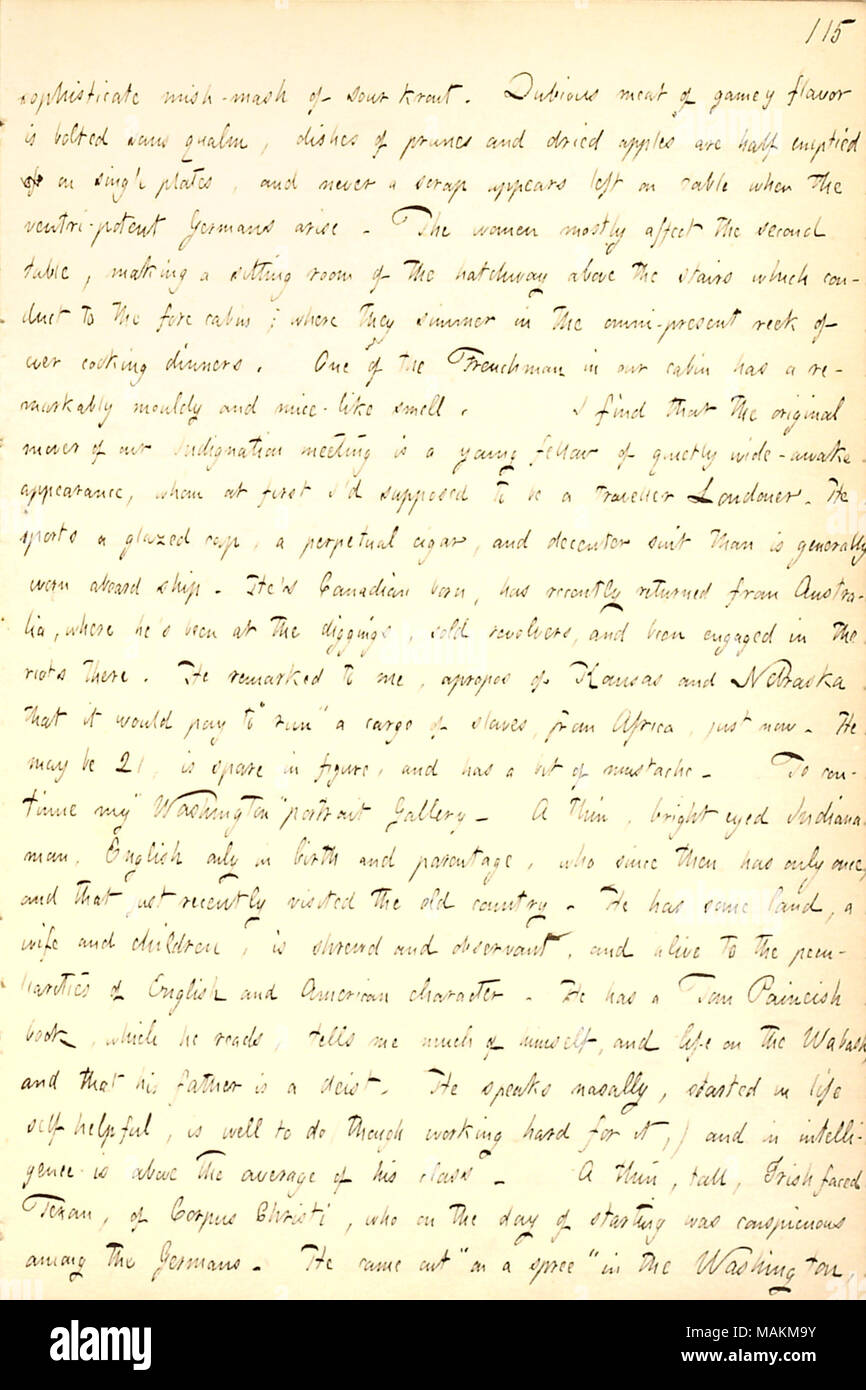 115
sophisticate mish-mash of sour krout. Dubious meat of gamey flavor
is bolted sans qualm, dishes of prunes and dried apples are half emptied
on single plates, and never a scrap appears left on table when the
ventri-potent Germans arise. The women mostly affect the second
table, making a sitting room of the hatchway above the stairs which con-
duct to the fore cabin; where they simmer in the omni-present reek of
ever cooking dinners. One of the Frenchman in our cabin has a re-
markably mouldy and mice-like smell. I find that the original
mover of our Indignation meeting is a young fellow of quietly wide-awake
appearance, whom at first I'd supposed to be a traveller Londoner. He
sports a glazed cap, a perpetual cigar, and decenter suit than is generally
worn aboard ship. He's Canadian born, has recently returned from Austra-
lia, where he's been at the diggings, sold revolvers, and been engaged in the
riots there. He remarked to me, apropos of Kansas and Nebraska
that it would pay to "run" a cargo of slaves, from Africa, just now. He
may be 21, is spare in figure, and has a bit of mustache. To con-
tinue my "Washington" portrait Gallery. A thin, bright eyed Indiana
man, English only in birth and parentage, who since then has only once,
and that just recently visited the old country. He has some land, a
wife and children, is shrewd and observant, and alive to the pecu-
liarities of English and American character. He has a Tom Paineish
book, which he reads, tells me much of himself, and life on the Wabash,
and that his father is a deist. He speaks nasally, started in life
self helpful, is well to do, though working hard for it,) and in intelli-
gence is above the average of his class. A thin, tall, Irish faced
Texan, of Corpus Christi, who on the day of starting was conspicuous
among the Germans. He came out "on a spree" in the Washington,
alamy
Image ID: MAKM9Y
www.alamy.com